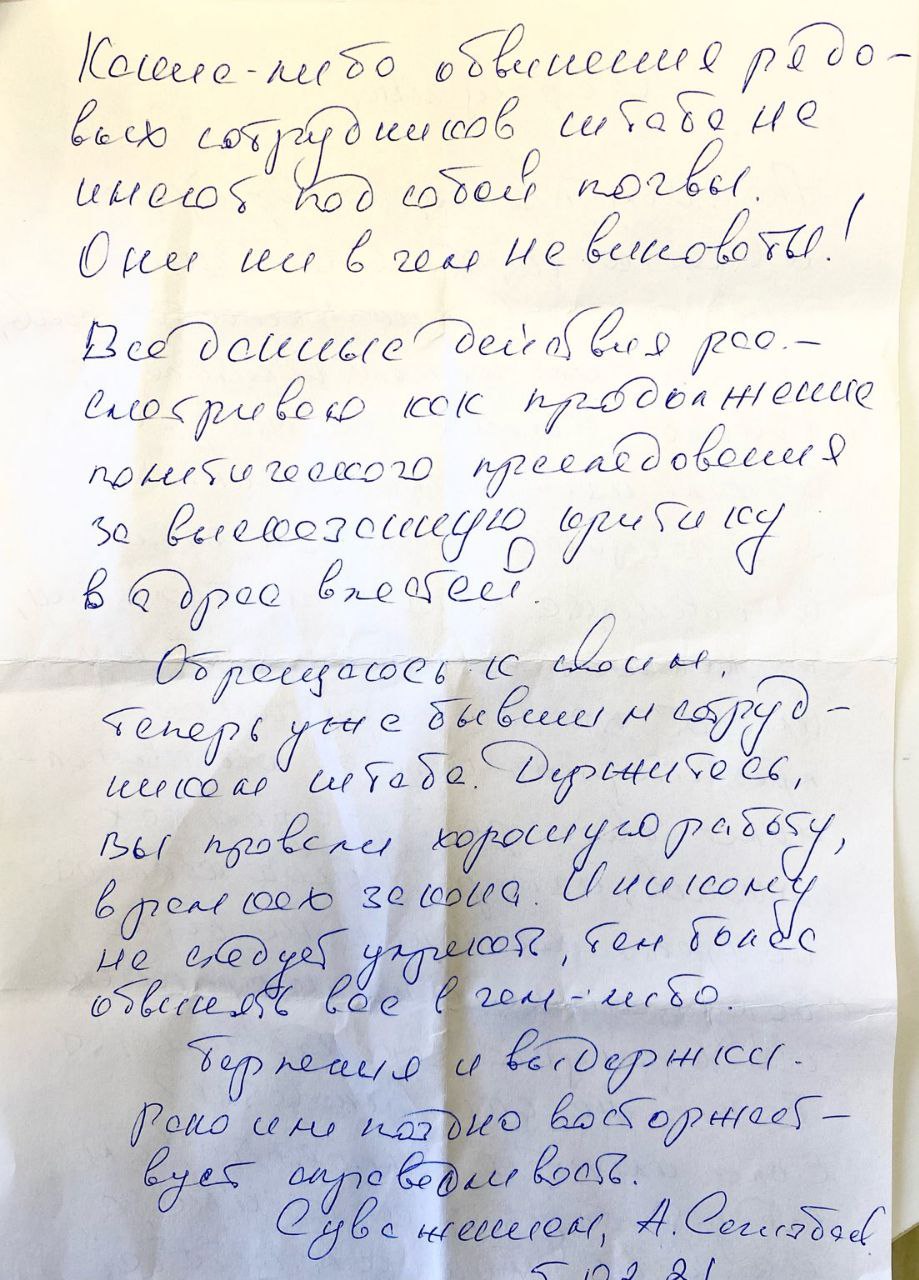 Какие-либо обвинения рядо-
вых сотрудников штаба не
имеют под собой почвы.
Они ни в чем не виноваты!
Все данные действия рас-
сматриваю как продолжение
политического преследования
за высказанную критику
в адрес властей.
Обращаюсь к своим,
теперь уже бывшим сотруд-
никам штаба. Держитесь,
вы провели хорошую работу,
в рамках закона. И никому
не следует упрекать, тем более
обвинять вас в чем-либо.
Терпения и выдержки.
Рано или поздно восторжест-
вует справедливость.
С уважением, А.